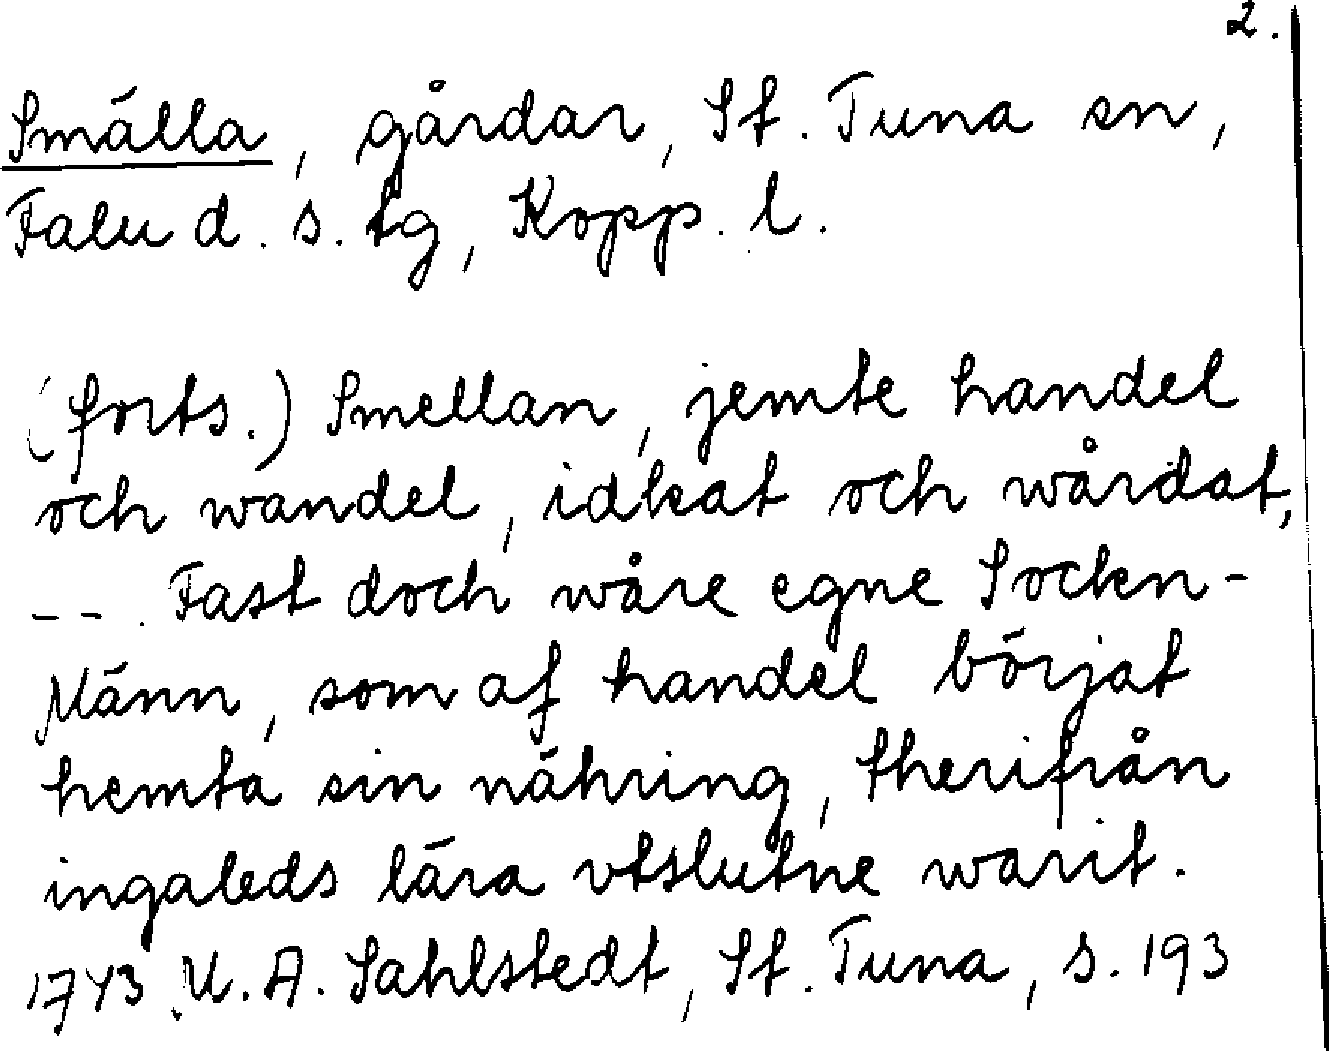 2.
Smälla, gårdar, St. Tuna sn,
Falu d. s. tg, Kopp. l.
(forts.) Smellan, jemte handel
och wandel, idkat och wårdat,
--. Fast doch wåre egne Sockn-
Männ, som af handel börjat
hemta sin nähring, therifrån
ingaleds lära vtslutne warit.
1743 M. A. Sahlstedt, St. Tuna, s. 193